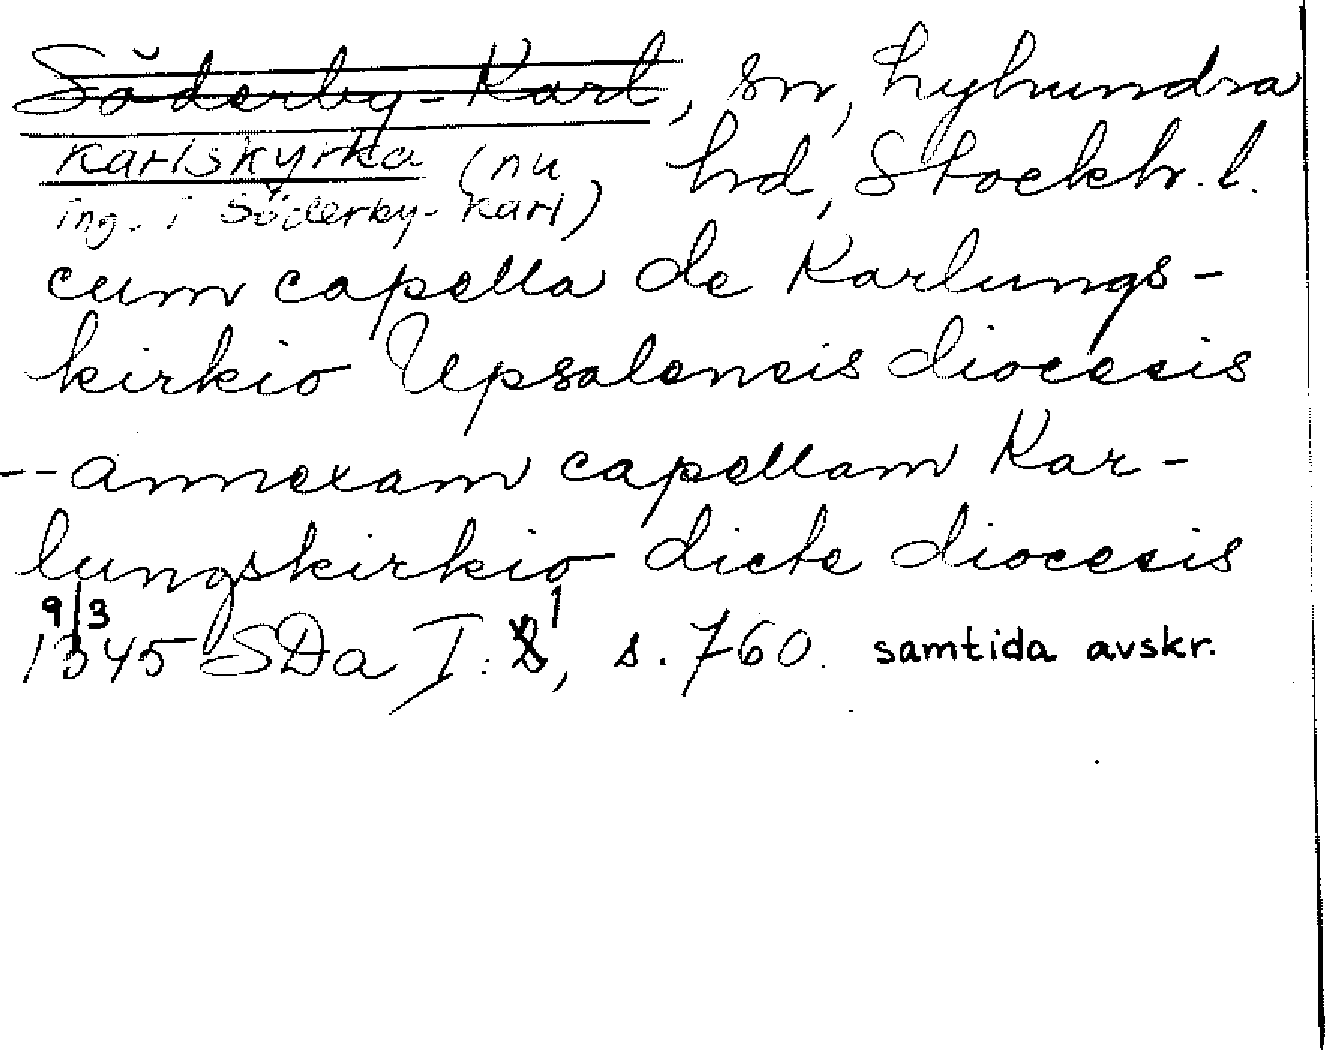 Söderby-Karl, sn, Lyhundra
Karlskyrka (nu hd, Stockh. l.
ing. i Söderby-Karl)
cum capella de Karlungs-
kirkio Upsalensis diocesis
-- annexam capellam Kar-
lungskirkio dicte diocesis
9/3
1345 SDa I: 1, s. 760. samtida avskr.